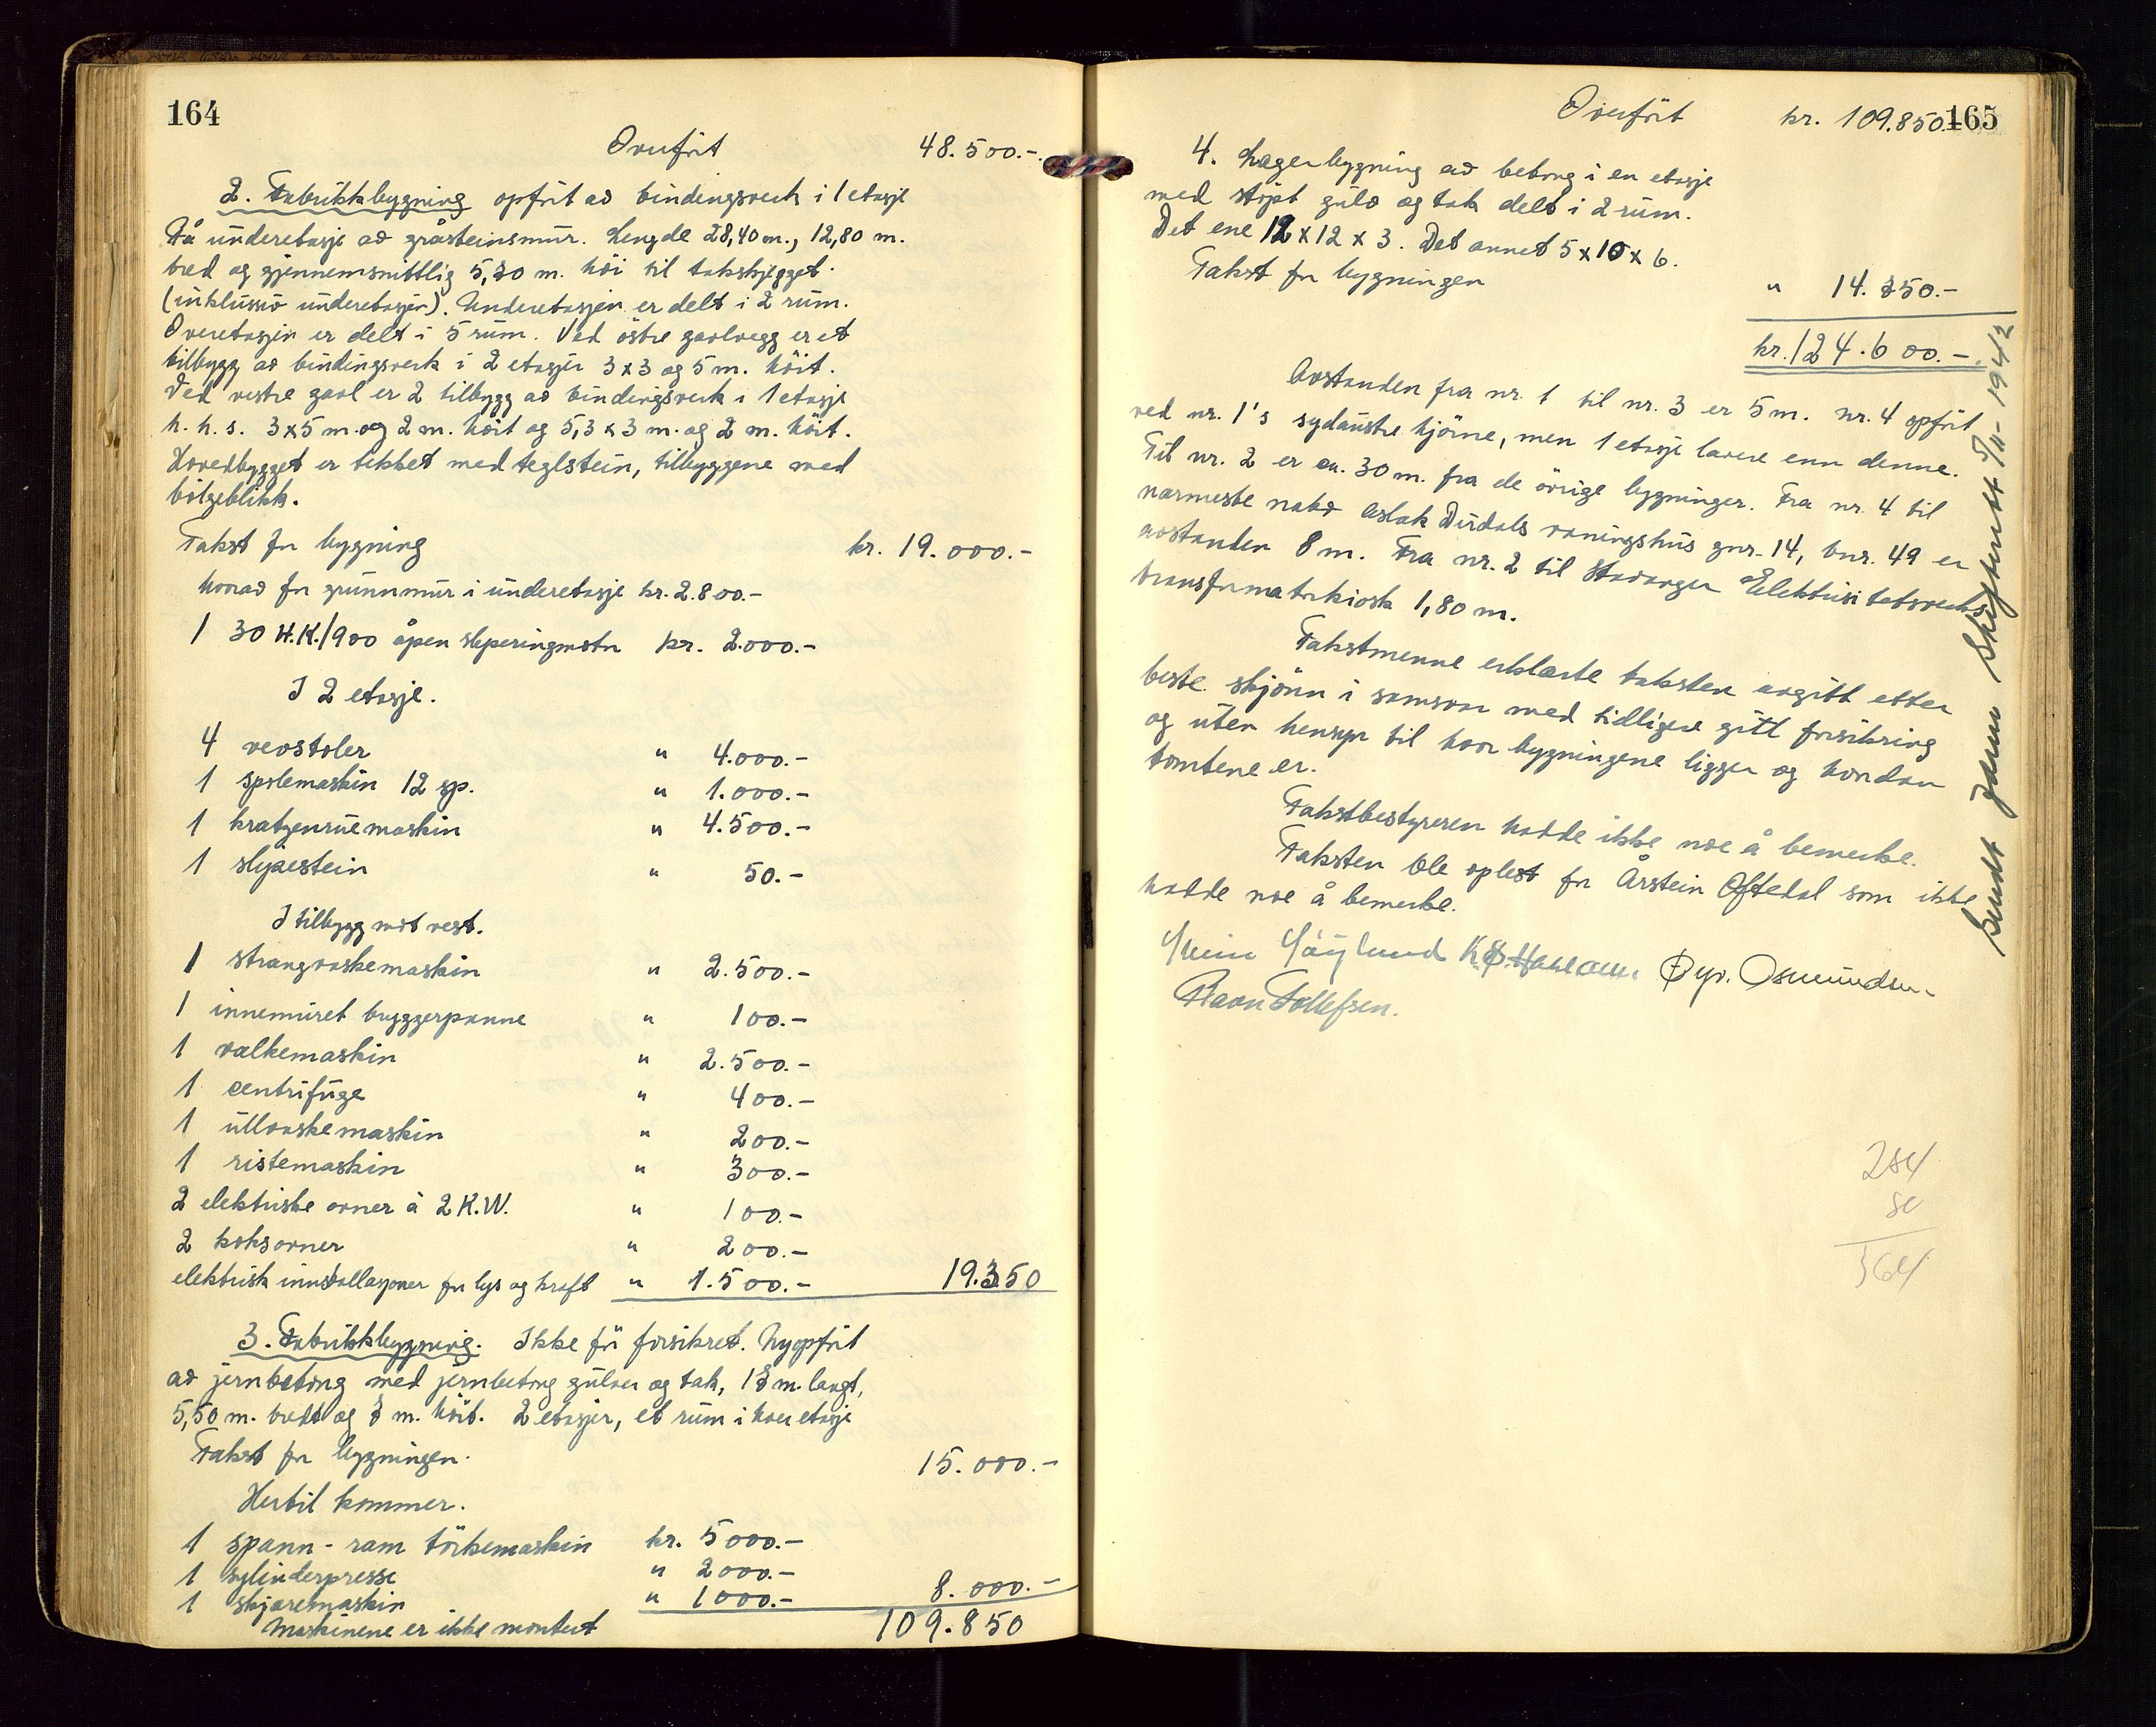 164
Overført 48.500.-
2. Fabrikkbygning opført av bindingsverk i 1 etasje
På underetasje av gråsteinsmur. Lengde 28,40 m., 12,80 m.
bred og gjennemsnittlig 5,30 m. höi til takskjegget.
(inklussiv underetasjen). Underetasjen er delt i 2 rum.
Overetasjen er delt i 5 rum. Ved östre gavlvegg er et
tilbygg av bindingsverk i 2 etasjer 3x3 og 5 m. höit.
Ved vestre gavl er 2 tilbygg av bindingsverk i 1 etasje
h. h. s. 3x5 m. og 2 m. höit og 5,3 x 3 m. og 2 m. höit.
Hovedbygget er tekket med teglstein, tilbyggene med
bölgeblikk.
Takst for bygning kr. 19.000.-
hvorav for grunnmur i underetasje kr. 2.800.-
1 30 H.K./900 åpen sleperingmotor kr. 2.000.-
I 2 etasje.
4 vevstoler " 4.000.-
1 spolemaskin 12 sp. " 1.000.-
1 kratzenruemaskin " 4.500.-
1 slipestein " 50.-
I tilbygg mot vest.
1 strangvaskemaskin " 2.500.-
1 innemuret bryggerpanne " 100.-
1 valkemaskin " 2.500.-
1 centrifuge " 400.-
1 ullvaskemaskin " 200.-
1 ristemaskin " 300.-
2 elektriske ovner à 2 K.W. " 100.-
2 koksovner " 200.-
elektrisk innstallasjoner for lys og kraft " 1.500.- 19.350
3. Fabrikkbygning. Ikke för forsikret. Nyopfört
av jernbetong med jernbetong gulver og tak, 18 m. langt,
5,50 m. bredt og 8 m. höit. 2 etasjer, et rum i hver etasje
Takst for bygningen. 15.000.-
Hertil kommer.
1 spann-ram törkemaskin kr. 5000.-
1 sylinderpresse " 2000.-
1 skjæremaskin " 1000.- 8.000.-
Maskinene er ikke montert 109.850
165
Overfört kr. 109.850.-
4. Lagerbygning av betong i en etasje
med stöpt gulv og tak delt i 2 rum.
Det ene 12 x 12 x 3. Det annet 5 x 10 x 6.
Takst for bygningen " 14.750.-
kr. 124.600.-
Avstanden fra nr. 1 til nr. 3 er 5 m. nr. 4 opfört
ved nr. 1's sydöstre hjörne, men 1 etasje lavere enn denne.
Til nr. 2 er ca. 30 m. fra de övrige bygninger. Fra nr. 4 til
nærmeste nabo Aslak Dirdals våningshus gnr. 14, bnr. 49 er
avstanden 8 m. Fra nr. 2 til Stavanger Elektrisitetsverks
transformatorkiosk 1,80 m.
Takstmenne erklærte taksten avgitt etter
beste skjönn i samsvar med tidligere gitt forsikring
og uten hensyn til hvor bygningene ligger og hvordan
tomtene er.
Takstbestyreren hadde ikke noe å bemerke.
Taksten ble oplest for Årstein Oftedal som ikke
hadde noe å bemerke.
Øyv. Osmundsen
Ravn Tollefsen.
Sendt 1942
284
80
364